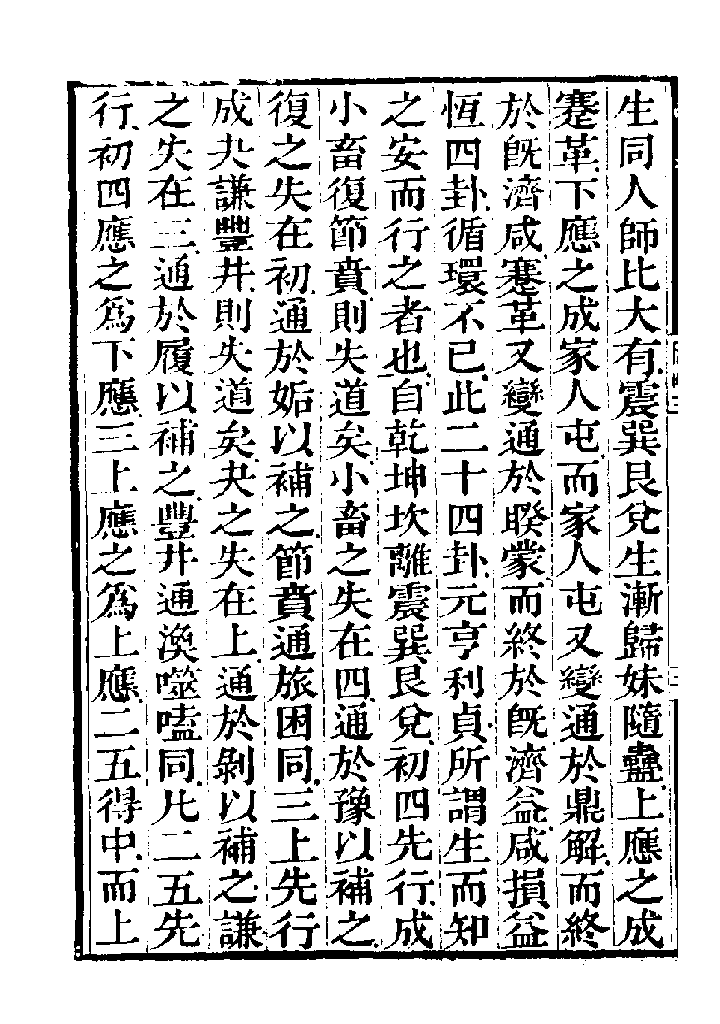 生同人師比大有震巽艮兌生漸歸妹隨蠱上應之成
蹇革下應之成家人屯而家人屯又變通於鼎解而終
於旣濟咸蹇革又變通於睽蒙而終於旣濟益咸損益
恆四卦循環不已此二十四卦元亨利貞所謂生而知
之安而行之者也自乾坤坎離震巽艮兌初四先行成
小畜復節賁則失道矣小畜之失在四通於豫以補之
復之失在初通於姤以補之節賁通旅困同三上先行
成夬謙豐井則失道矣夬之失在上通於剝以補之謙
之失在三通於履以補之豐井通渙噬嗑同凡二五先
行初四應之爲下應三上應之爲上應二五得中而上